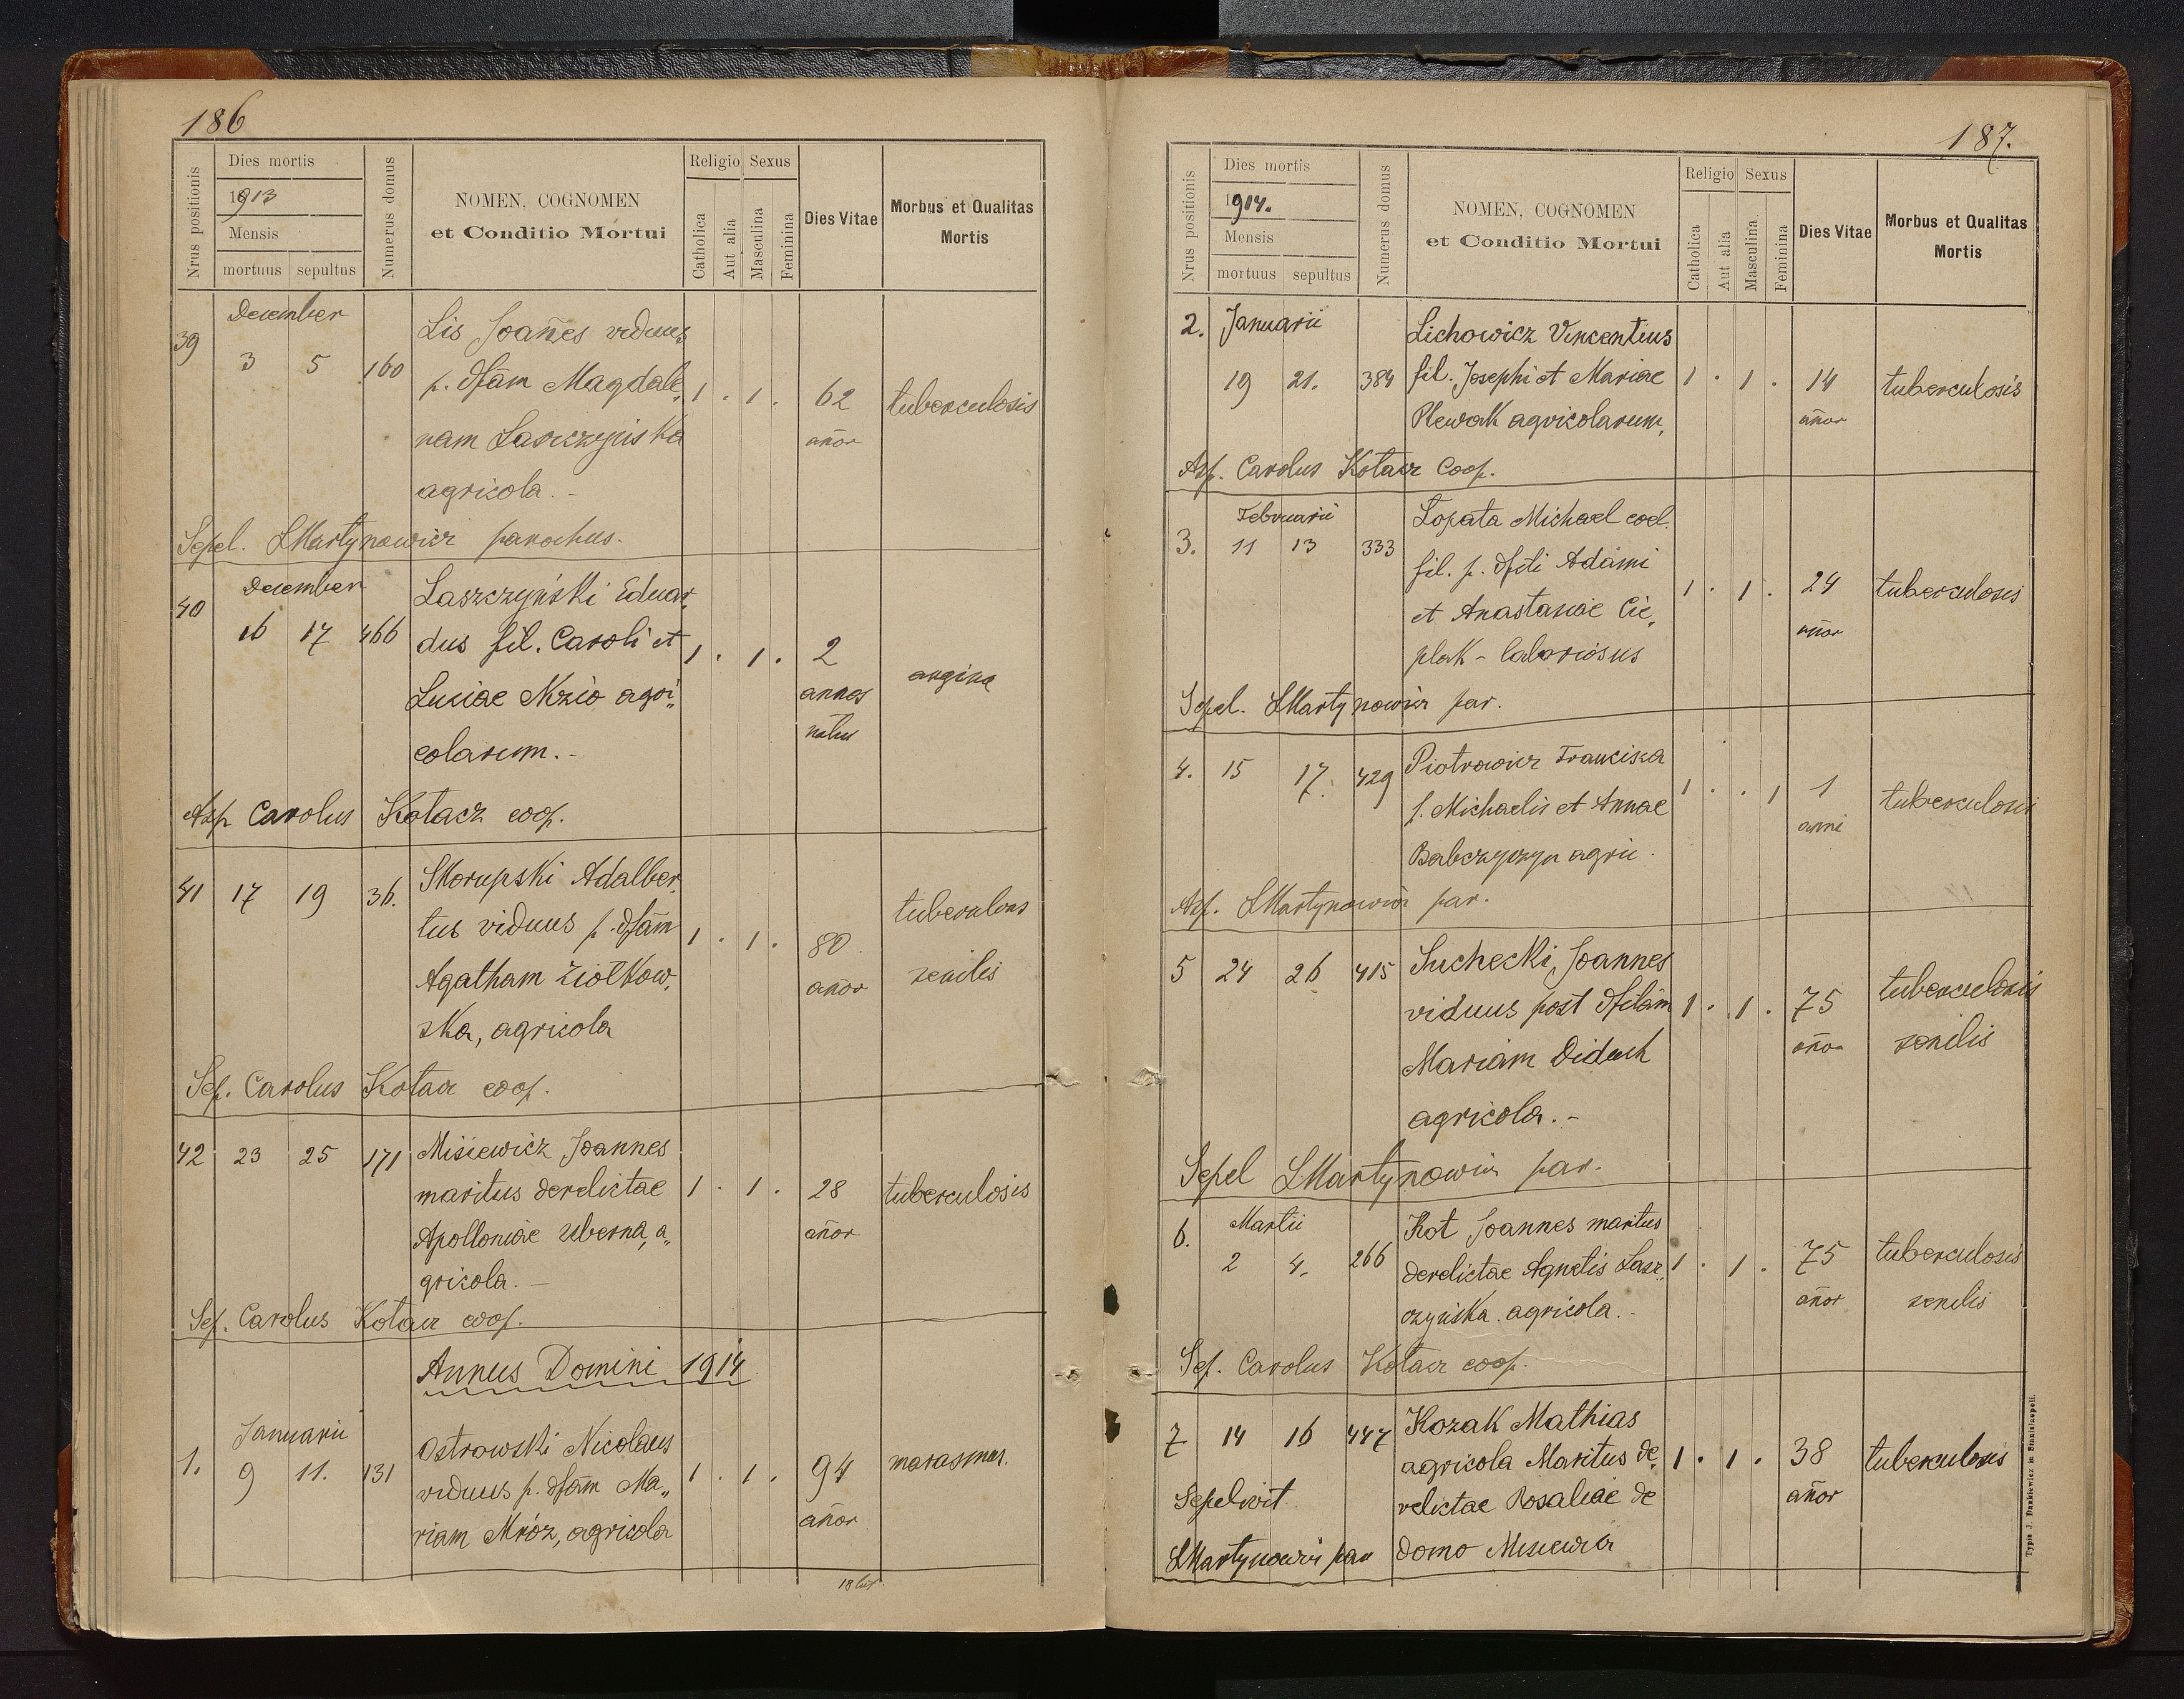 186
Nrus positionis
Dies mortis
1913
Mensis
mortuus sepultus
Numerus domus
NOMEN, COGNOMEN
et Conditio Mortui
Religio Sexus
Catholica
Aut alia
Masculina
Feminina
Dies Vitae
Morbus et Qualitas
Mortis
December
39 3 5 160
Lis Joañes viduus
p. dfãm Magdale,
nam Laszczyńska
agricola. -
1 . 1 . 62
añor
tuberculosis
Sepel. LMartynowicz parochus.
December
40 16 17 466
Laszczyński Eduar,
dus fil. Caroli et
Luciae Nzio agri„
colarum. -
1 . 1 . 2
annos
natus
angina
Asp Carolus Kotacz coop.
41 17 19 36.
Skorupski Adalber,
tus viduus p. dfãm
Agatham Ziołkow,
ska, agricola
1 . 1 . 80
añor
tuberculosis
senilis
Sep. Carolus Kotacz coop.
42 23 25 171
Misiewicz Joannes
maritus derelictae
Apolloniae Uberna, a„
gricola. -
1 . 1 . 28
añor
tuberculosis
Sep. Carolus Kotacz coop.
Annus Domini 1914
Januarii
1. 9 11. 131
Ostrowski Nicolaus
viduus p. dfãm Ma„
riam Mróz, agricola
1 . 1 . 94
añor
marasmus.
187.
Nrus positionis
Dies mortis
1914.
Mensis
mortuus sepultus
Numerus domus
NOMEN, COGNOMEN
et Conditio Mortui
Religio Sexus
Catholica
Aut alia
Masculina
Feminina
Dies Vitae
Morbus et Qualitas
Mortis
2. Januarii
19 21. 384
Lichowicz Vincentius
fil. Josephi et Mariae
Plewak agricolarum,
1 . 1 . 14
añor
tuberculosis
Asp. Carolus Kotacz Coop.
Februarii
3. 11 13 333
Łopata Michael coel.
fil. p. dfcti Adami
et Anastasiae Cie,
plak - laboriosus
1 . 1 . 24
añor
tuberculosis
Sepel. LMartynowicz par.
4. 15 17. 429
Piotrowicz Francisca
f. Michaelis et Annae
Babczyszyn agric.
1 . . 1 1
anni
tuberculosis
Asp. LMartynowicz par.
5 24 26 415
Suchecki, Joannes
viduus post dfctãm
Mariam Diduch
agricola. -
1 . 1 . 75
añor
tuberculosis
senilis
Sepel LMartynowicz par.
6. Martii
2 4. 266
Kot Joannes maritus
derelictae Agnetis Lasz„
czyńska. agricola. -
1 . 1 . 75
añor
tuberculosis
senilis
Sep. Carolus Kotacz coop.
7 14 16 447
Kozak Mathias
agricola Maritus de,
relictae Rosaliae de
domo Misiewicz
1 . 1 . 38
añor
tuberculosis
Sepelivit
LMartynowicz par
Typis J. Dankiewicz in Stanislaopoli.